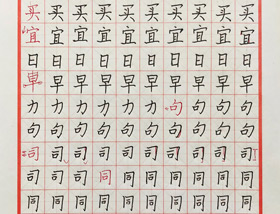 买买买买买买买买买
宜宜宜宜宜宜宜宜宜
日日日日日日日日日
早早早早早早早早
力力力力力句力力力
句句句句句句句句句
司司司司司司司司司
司司司同同同同同同
同同同同同同同同同